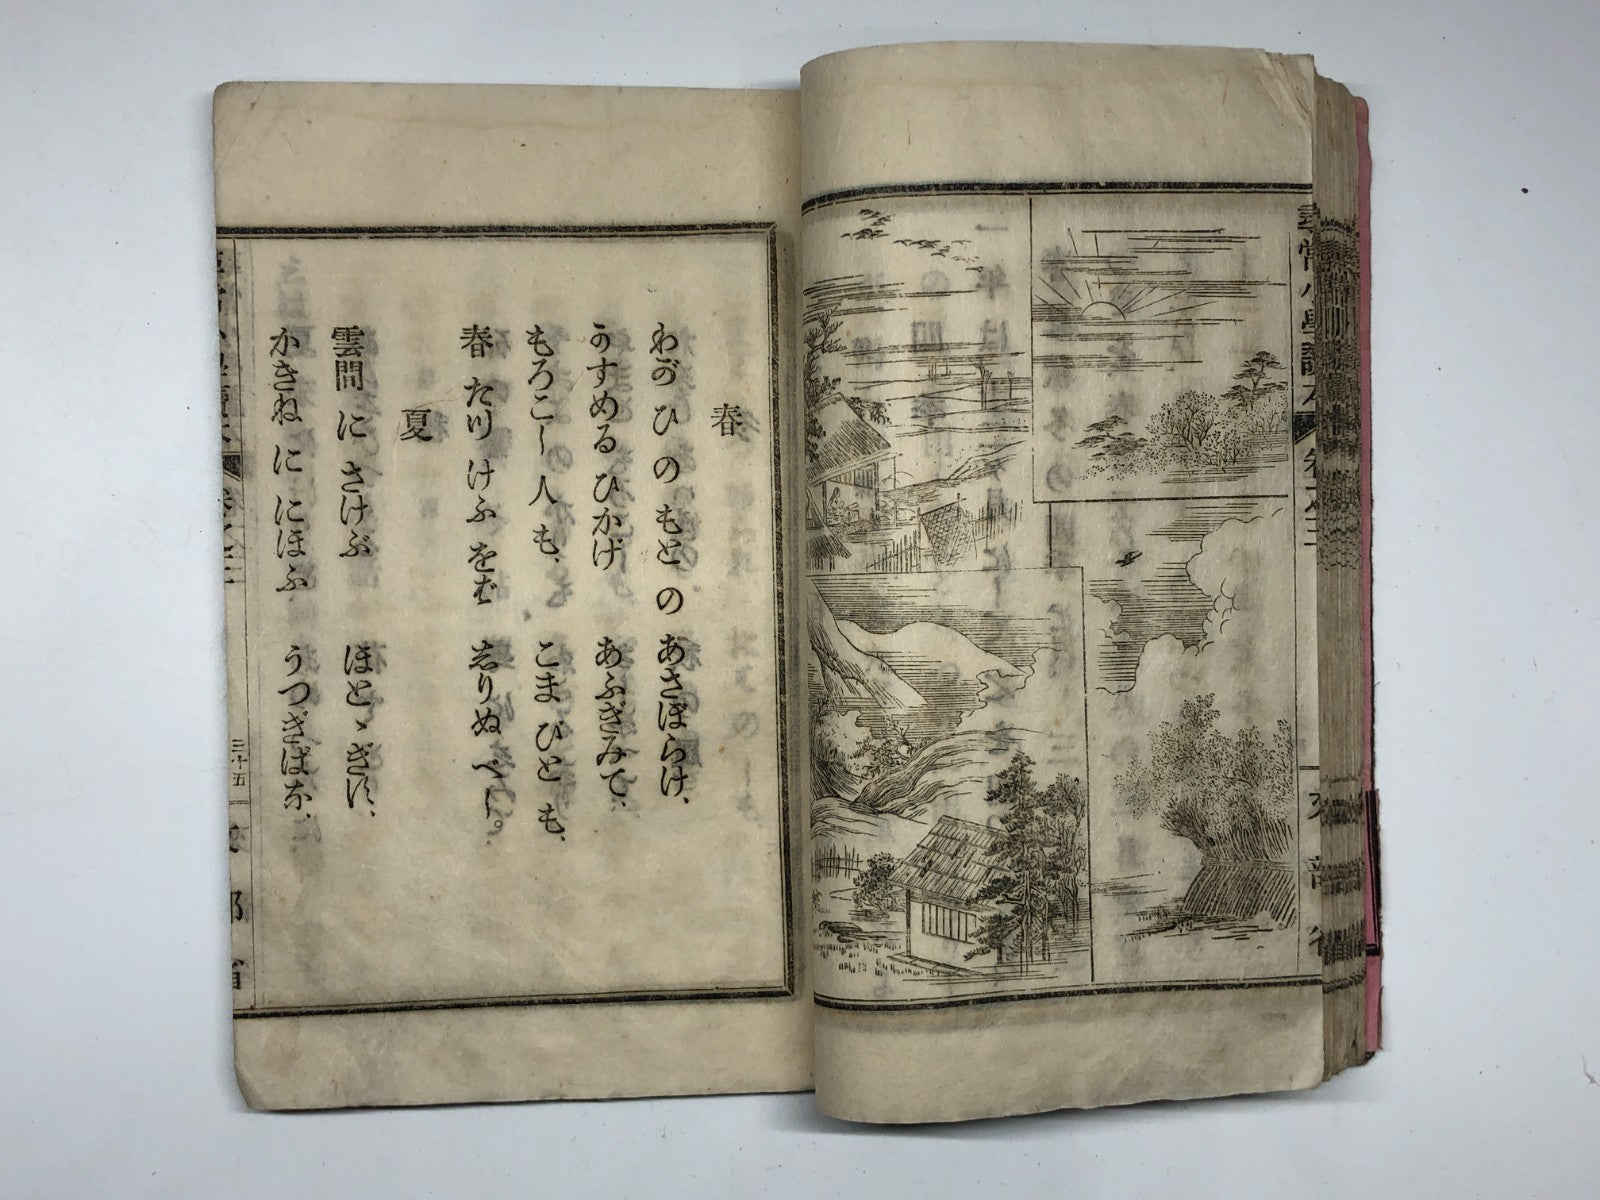 尋常小學讀本 卷之二
文部省
春
わがひのもとの あさぼらけ、
かすめるひかげ あふぎみて、
もろこし人も、 こまびとも、
春たつけふをば しりぬべし。
夏
雲間にさけぶ ほとゝぎす、
かきねににほふ うつぎばな、
三十五
部省